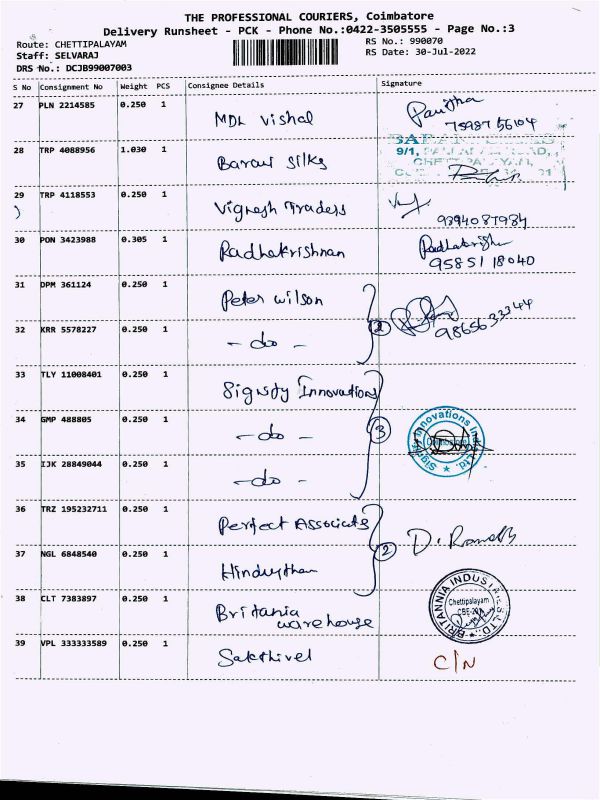 THE PROFESSIONAL COURIERS, Coimbatore
Delivery Runsheet - PCK - Phone No.:0422-3505555 - Page No.:3
Route: CHETTIPALAYAM RS No.: 990070
Staff: SELVARAJ RS Date: 30-Jul-2022
DRS No.: DCJB99007003
S No Consignment No Weight PCS Consignee Details Signature
27 PLN 2214585 0.250 1 MDL Vishal
75987 56104
28 TRP 4088956 1.030 1 Barani Silks
9/1,
29 TRP 4118553 0.250 1 Vignesh Traders
9894087984
30 PON 3423988 0.305 1 Radhakrishnan Radhakrishn
95851 18040
31 DPM 361124 0.250 1 Peter Wilson
2 9865633344
32 KRR 5578227 0.250 1 - do -
33 TLY 11008401 0.250 1 Signify Innovations
34 GMP 488805 0.250 1 - do - 3 Signify Innovations India Ltd. Coimbatore
35 IJK 28849044 0.250 1 - do -
36 TRZ 195232711 0.250 1 Perfect Associats
2
37 NGL 6848540 0.250 1 Hindusthan
38 CLT 7383897 0.250 1 Britania
warehouse
BRITANNIA INDUSTRIES LTD. Chettipalayam
39 VPL 333333589 0.250 1 Sakthivel C/N